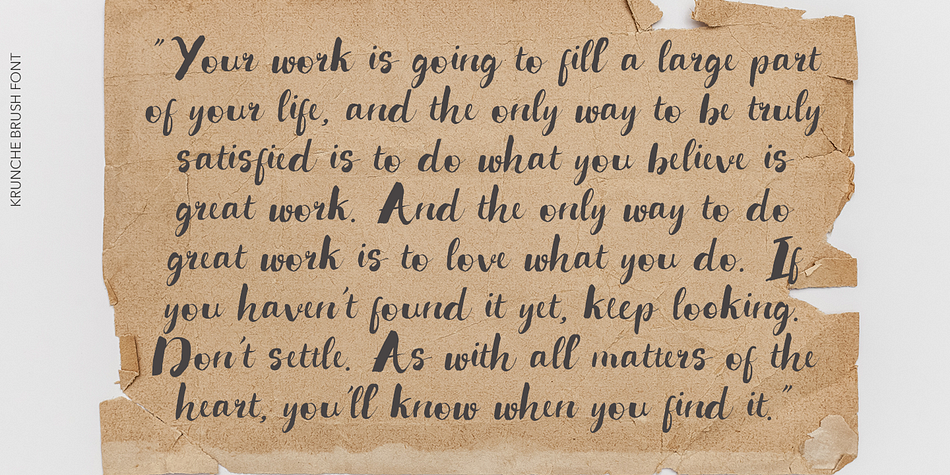 KRUNCHE BRUSH FONT
"Your work is going to fill a large part
of your life, and the only way to be truly
satisfied is to do what you believe is
great work. And the only way to do
great work is to love what you do. If
you haven't found it yet, keep looking.
Don't settle. As with all matters of the
heart, you'll know when you find it."